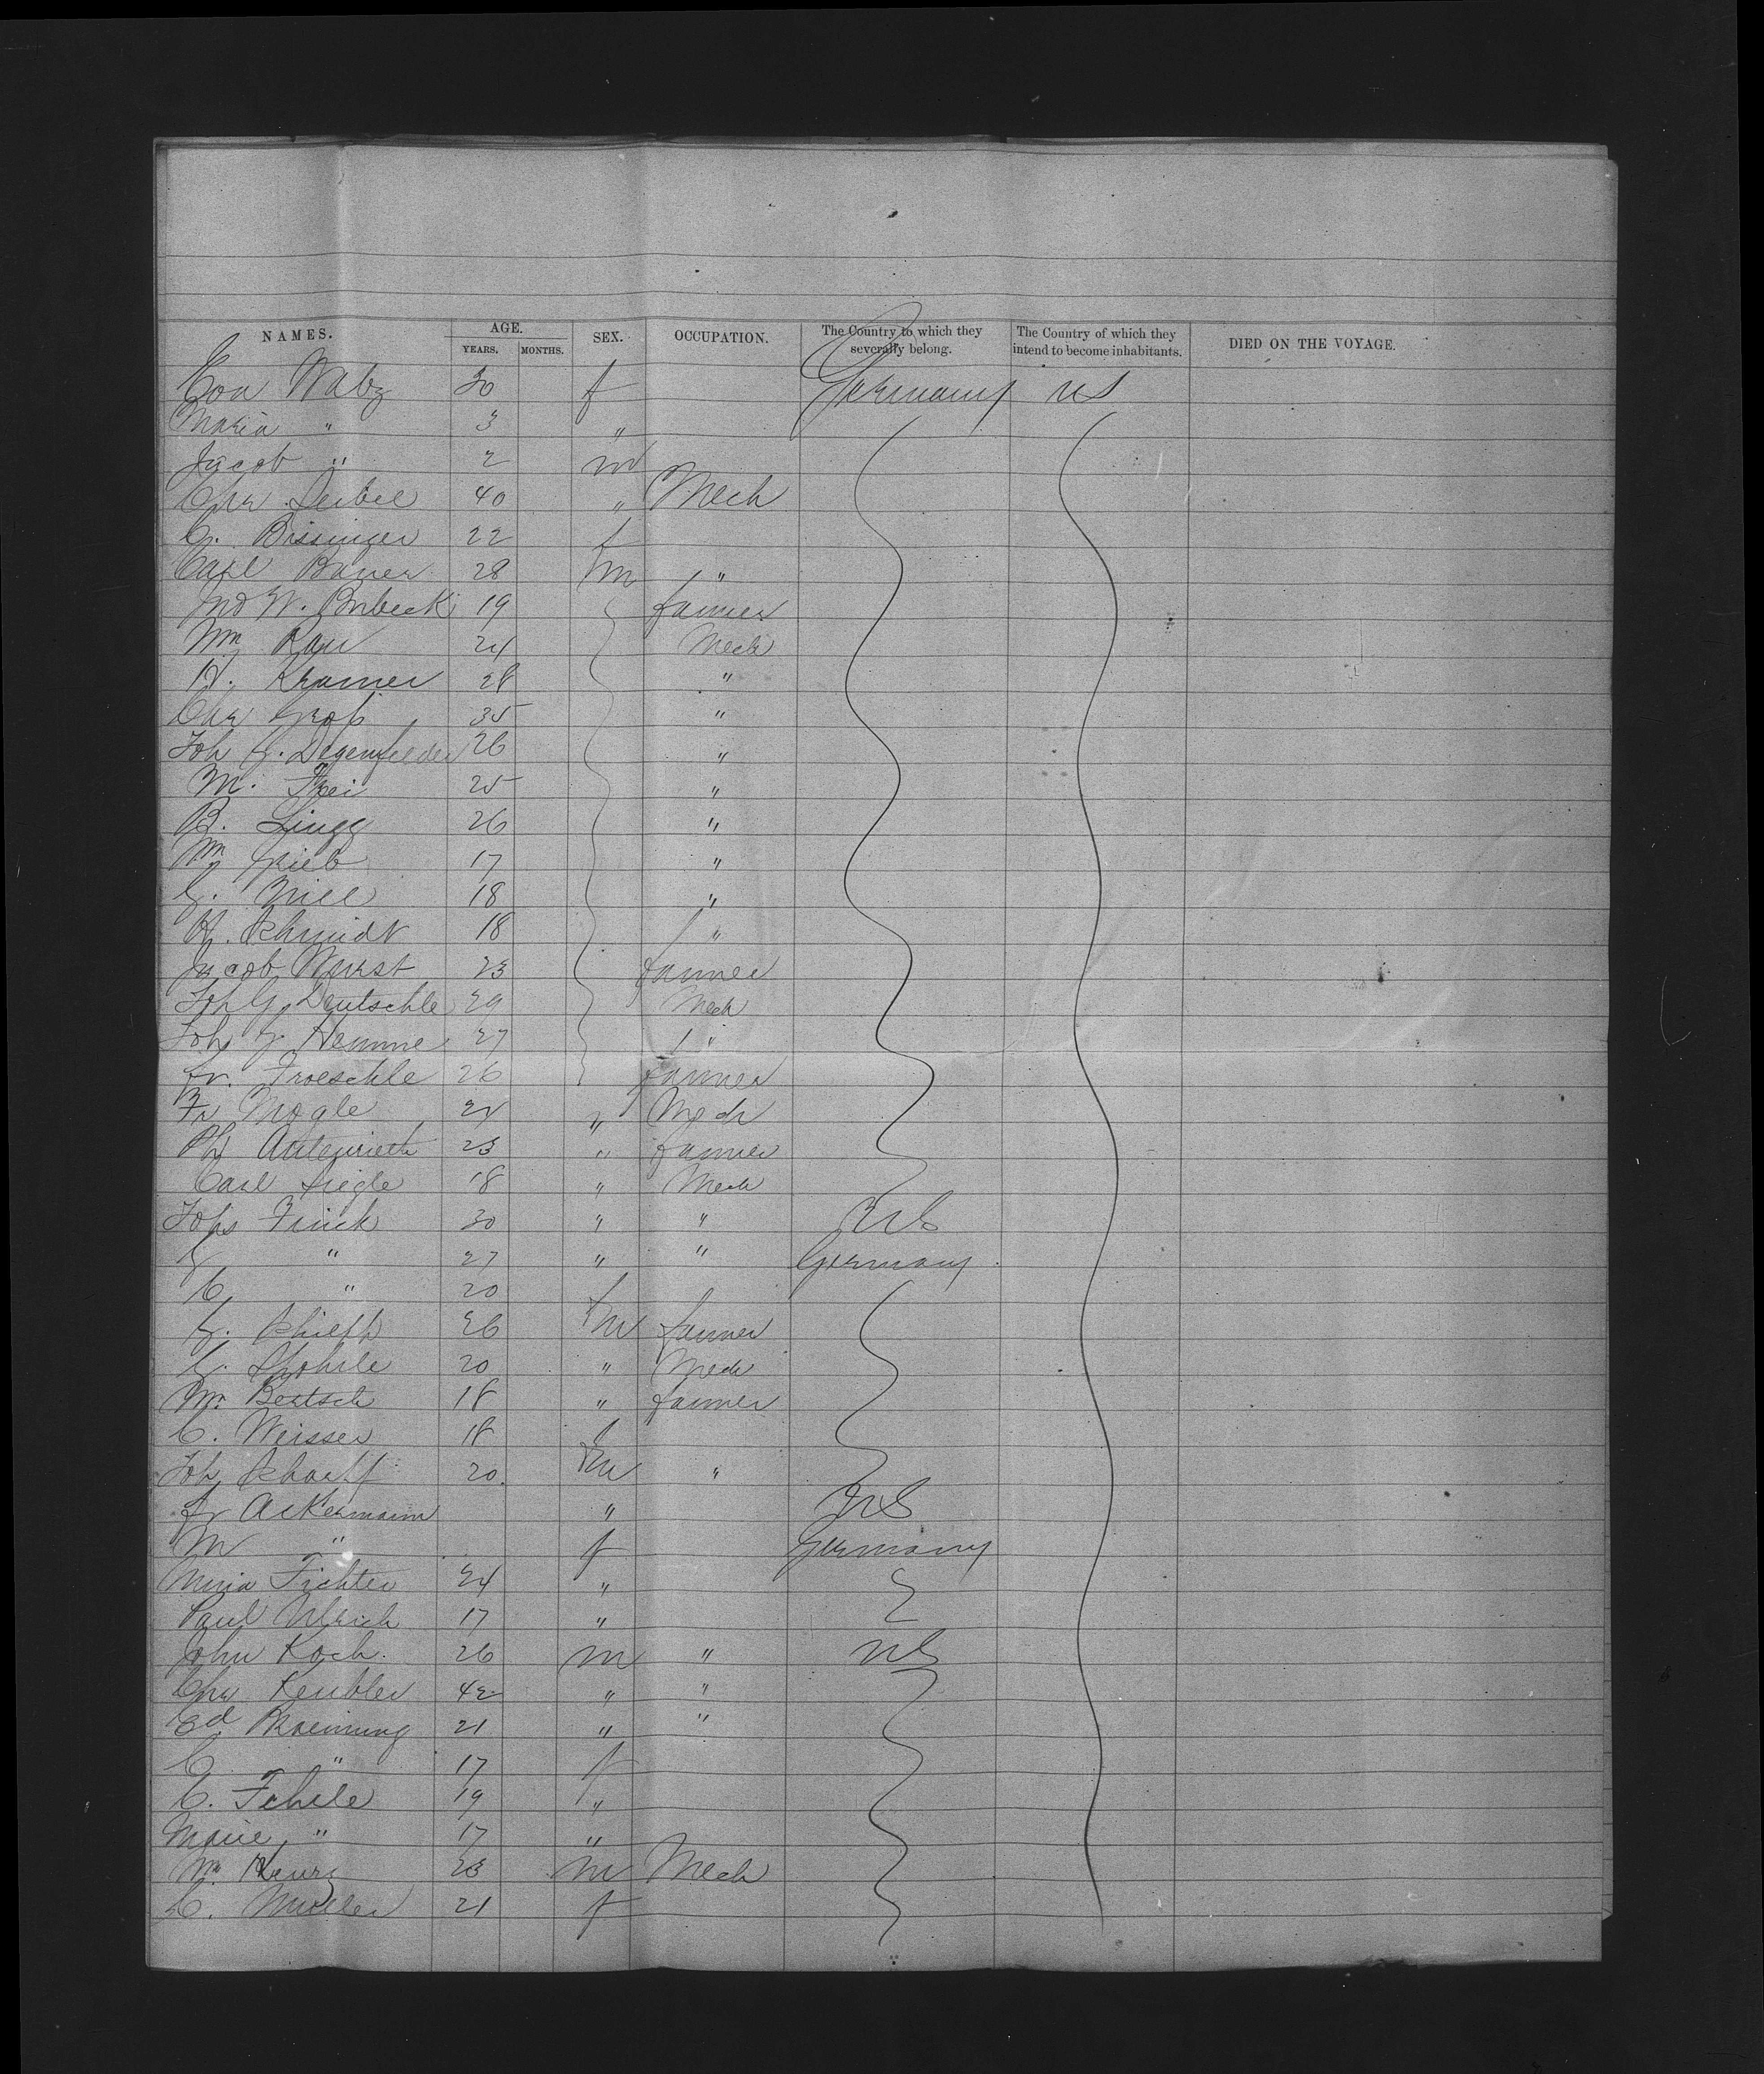 NAMES. AGE. YEARS. MONTHS. SEX. OCCUPATION. The Country to which they severally belong. The Country of which they intend to become inhabitants. DIED ON THE VOYAGE.
Eva Walz 30 f Germany US
Maria " 3 "
Jacob " 2 m
Chr Deibel 40 " Mech
G. Bissinger 22 f
Carl Bauer 28 m "
Jno W. 19 farmer
Wm Rau 24 Mech
H. Kramer 28 "
Chr Groß 35 "
Joh G. Degenfelder 26 "
M. Frei 25 "
B. Lingg 26 "
Wm Grieb 17 "
G. Nill 18 "
H. Schmidt 18 "
Jacob Wurst 23 farmer
Joh G. Deutschle 29 Mech
Joh G Hemme 27 "
Fr. Troeschle 26 farmer
Fr Mogle 24 " Mech
Ph Autenrieth 23 " farmer
Carl Siegle 18 " Mech
Johs Finck 30 " " US
G " 27 " " Germany
C " 20 f
G. 26 m farmer
G. 20 " Mech
Wm Bertsch 18 " farmer
C. Weisser 18 f
Joh Scharpf 20 m "
Fr Ackermann " US
M " f Germany
Maria Fichter 24 "
Paul Ulrich 17 "
John Koch 26 m " US
Chr Keubler 42 " "
Ed. Braeuning 21 " "
C. " 17 f
C. Fehele 19 "
Marie " 17 "
Wm Kurz 23 m Mech
C. Mueller 21 f